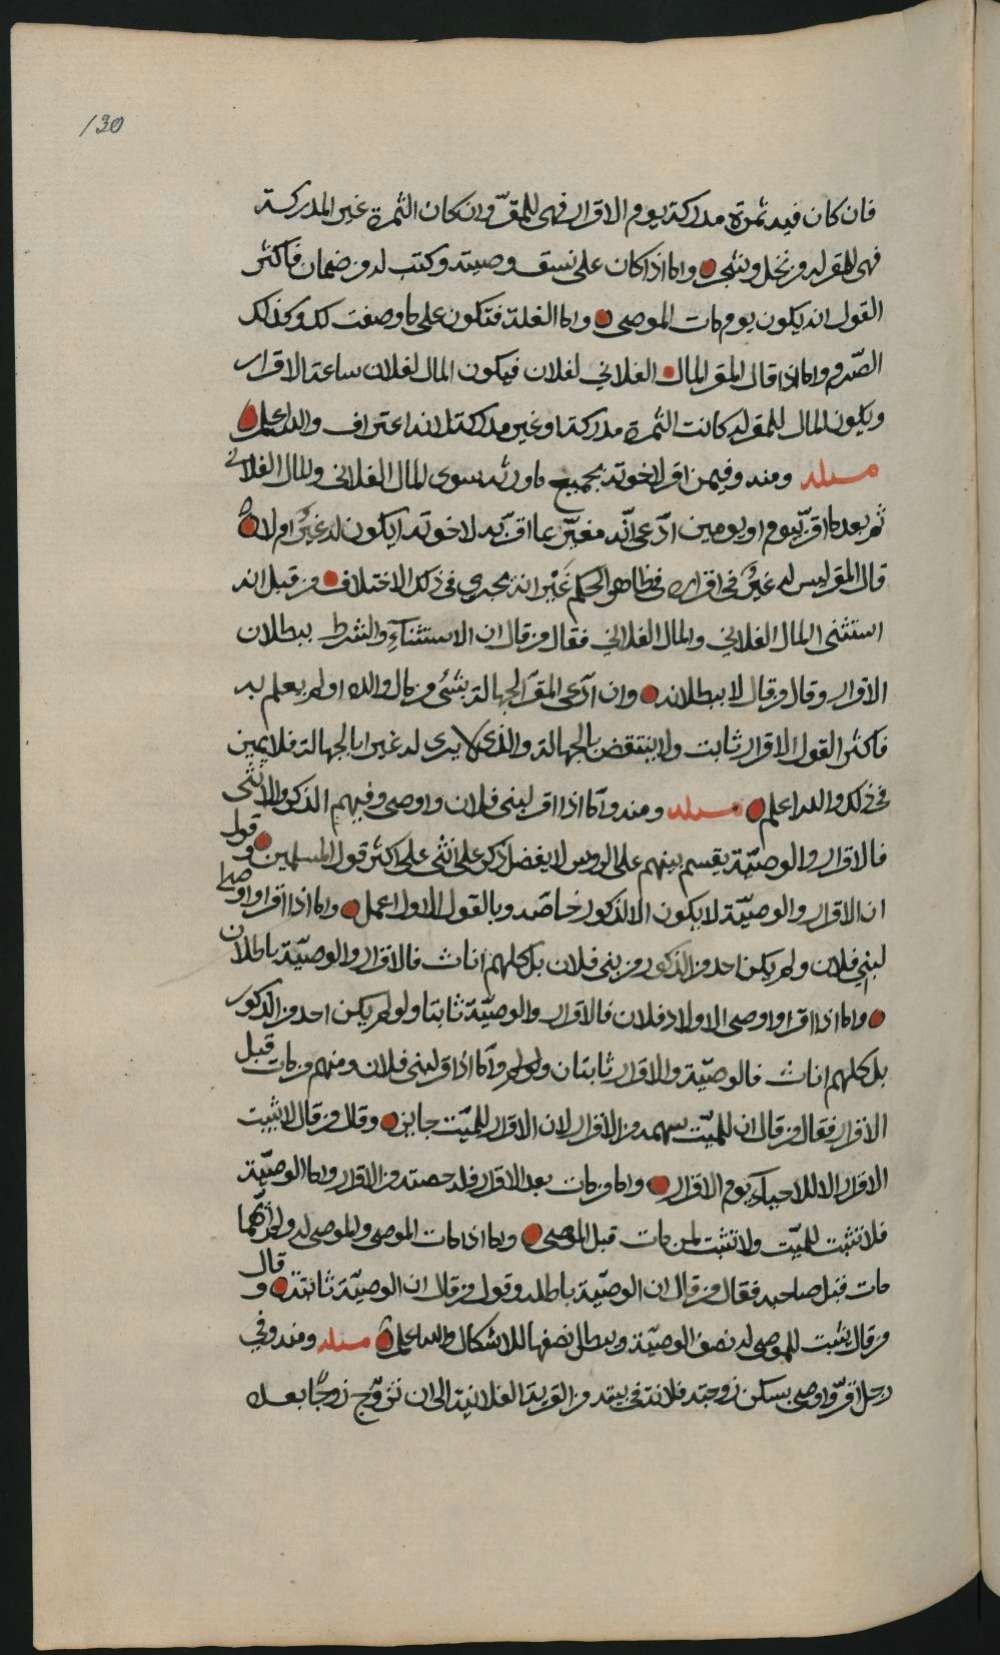 130
فان كان فيه ثمرة مدركة يوم الاقرار فهى للمقرّ وان كان الثمرة غير المدركة
فهى للمقر له من نخل وشجر واما اذا كان على نسق وصيته وكتب له من ضمان فاكثر
القول انه يكون يوم مات الموصى واما الغلة فتكون على ما وصفت لك وكذلك
الصّرم واما اذا قال المقر المال الفلاني لفلان فيكون المال لفلان ساعة الاقرار
ويكون المال للمقر له كانت الثمرة مدركة او غير مدركة لانه اعتراف والله اعلم
مسئلة ومنه وفيمن اقر لاخوته بجميع ما ورثه سوى المال الفلاني والمال الفلاني
ثم بعد ما اقرّ بيوم او يومين ادّعى انّه مغيّر عما اقرّ به لاخوته ايكون له غيرٌ ام لا
قال المقر ليس له غيرٌ في اقراره في ظاهر الحكم غير انه يجرى في ذلك الاختلاف من قبل انه
استثنى المال الفلاني والمال الفلاني فقال من قال ان الاستثناء والشرط يبطلان
الاقرار وقال من قال لا يبطلانه وان ادّعى المقرّ الجهالة بشئ من مال والده او لم يعلم به
فاكثر القول الاقرار ثابت ولا ينتقض بالجهالة والذى لا يرى له غيرا بالجهالة فلا يمين
فى ذلك والله اعلم مسئلة ومنه وامّا اذا اقر لبنى فلان واوصى وفيهم الذكر والانثى
فالاقرار والوصيّة يقسم بينهم على الروس لا يفضل ذكر على انثى على اكثر قول المسلمين وقول
ان الاقرار والوصيّة لا يكون الا للذكور خاصّه وبالقول الاول اعمل واما اذا اقر او اوصى
لبنى فلان ولم يكن احد من الذكور من بنى فلان بل كلهم اناث فالاقرار والوصيّة باطلان
واما اذا اقر او اوصى الاولاد فلان فالاقرار والوصيّة ثابتا ولو لم يكن احد من الذكور
بل كلهم اناث فالوصيّة والاقرار ثابتان ولو لم وامّا اذا اقر لبنى فلان ومنهم من مات قبل
الاقرار فقال من قال ان للميّت سهمه من الاقرار لان الاقرار للميّت جايز وقال من قال لا يثبت
الاقرار الا للاحياء يوم الاقرار واما من مات بعد الاقرار فله حصته من الاقرار واما الوصيّة
فلا تثبت للميّت ولا تثبت لمن مات قبل الموصى واما اذا مات الموصى والموصى له ولم ايّهما
مات قبل صاحبه فقال من قال ان الوصيّة باطله وقول من قال ان الوصيّة ثابتة وقال
من قال يثبت للموصى له نصف الوصيّة ويبطل نصفها للاشكال والله اعلم مسئلة ومنه وفي
رجل اقرّ واوصى بسكن زوجته فلانة في بيته من القرية الفلانية الى ان تزوّج زوجًا بعده